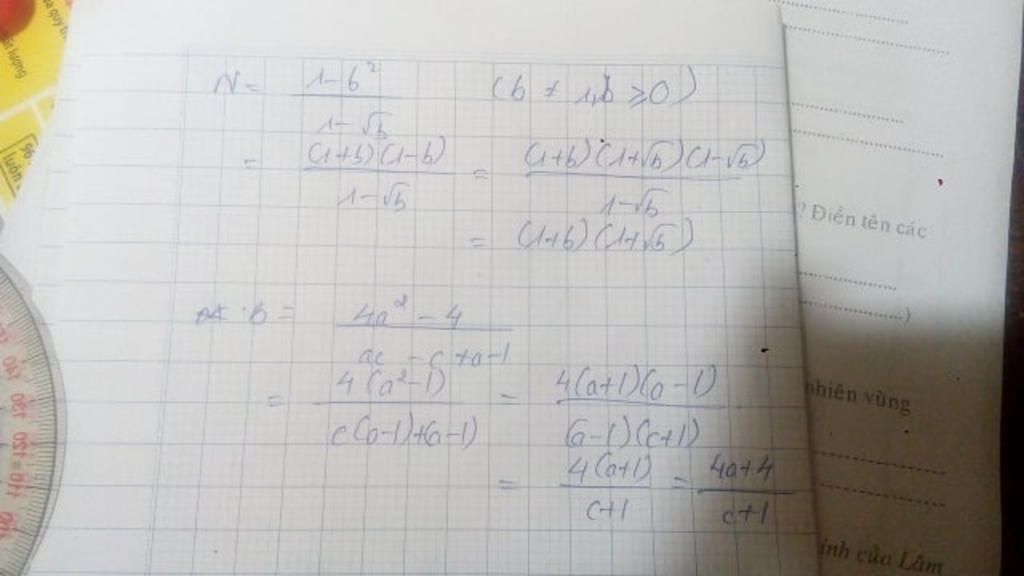 N = \frac{1-b^2}{1-\sqrt{b}} (b ≠ 1, b ⩾ 0)
= \frac{(1+b)(1-b)}{1-\sqrt{b}} = \frac{(1+b)(1+\sqrt{b})(1-\sqrt{b})}{1-\sqrt{b}}
= (1+b)(1+\sqrt{b})
B = \frac{4a^2-4}{ac-c+a-1}
= \frac{4(a^2-1)}{c(a-1)+(a-1)} = \frac{4(a+1)(a-1)}{(a-1)(c+1)}
= \frac{4(a+1)}{c+1} = \frac{4a+4}{c+1}
? Điền tên các
)
nhiên vùng
ính của Lâm
lượng